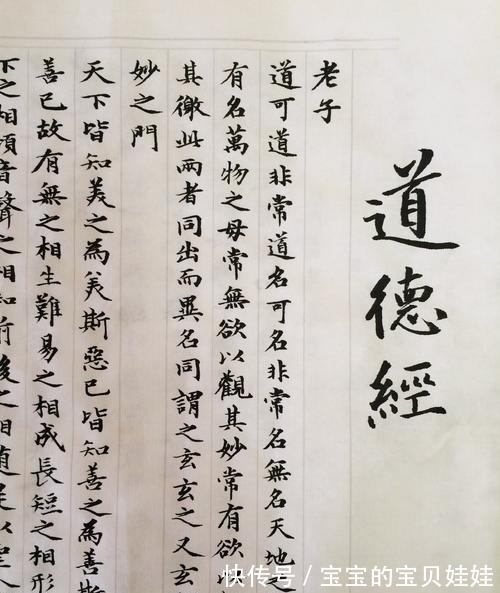 道德經
老子
道可道非常道名可名非常名無名天地之
有名萬物之母常無欲以觀其妙常有欲以
其徼此兩者同出而異名同謂之玄玄之又玄
妙之門
天下皆知美之為美斯惡已皆知善之為善斯
善已故有無之相生難易之相成長短之相形
下之相傾音聲之相和前後之相随是以聖人
快传号 / 宝宝的宝贝娃娃